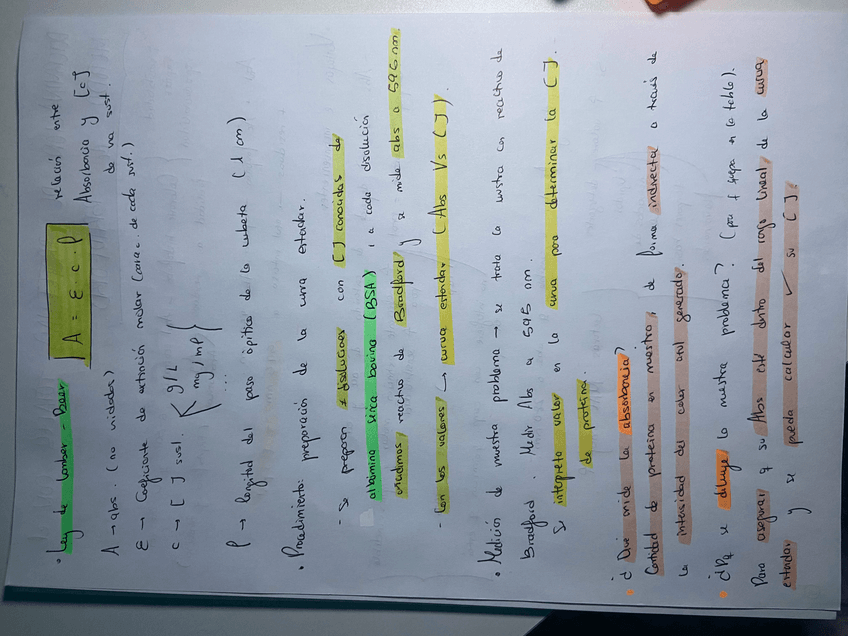 · Ley de Lamber-Beer | A = ε · c · l | relación entre
Absorbancia y [c]
de una sust.
A → abs. (no unidades)
ε → Coeficiente de extinción molar (carac. de cada sust.)
c → [ ] sust. < g/L
mg/ml
....
l → longitud del paso óptico de la cubeta (1 cm)
· Procedimiento: preparación de la curva estándar.
- Se preparan ≠ disoluciones con [ ] conocidas de
albúmina sérica bovina (BSA), a cada disolución
añadimos reactivo de Bradford y se mide abs a 595 nm.
- Con los valores → curva estándar (Abs Vs [ ]).
· Medición de muestra problema → se trata la muestra con reactivo de
Bradford. Medir Abs a 595 nm.
Se interpreta valor en la curva para determinar la [ ]
de proteína.
· ¿Que mide la absorbancia?
Cantidad de proteína en muestra, de forma indirecta a través de
la intensidad del color azul generado.
· ¿Pq se diluye la muestra problema? (en la tabla).
Para asegurar q su Abs esté dentro del rango lineal de la curva
estándar y se pueda calcular ✓ su [ ].